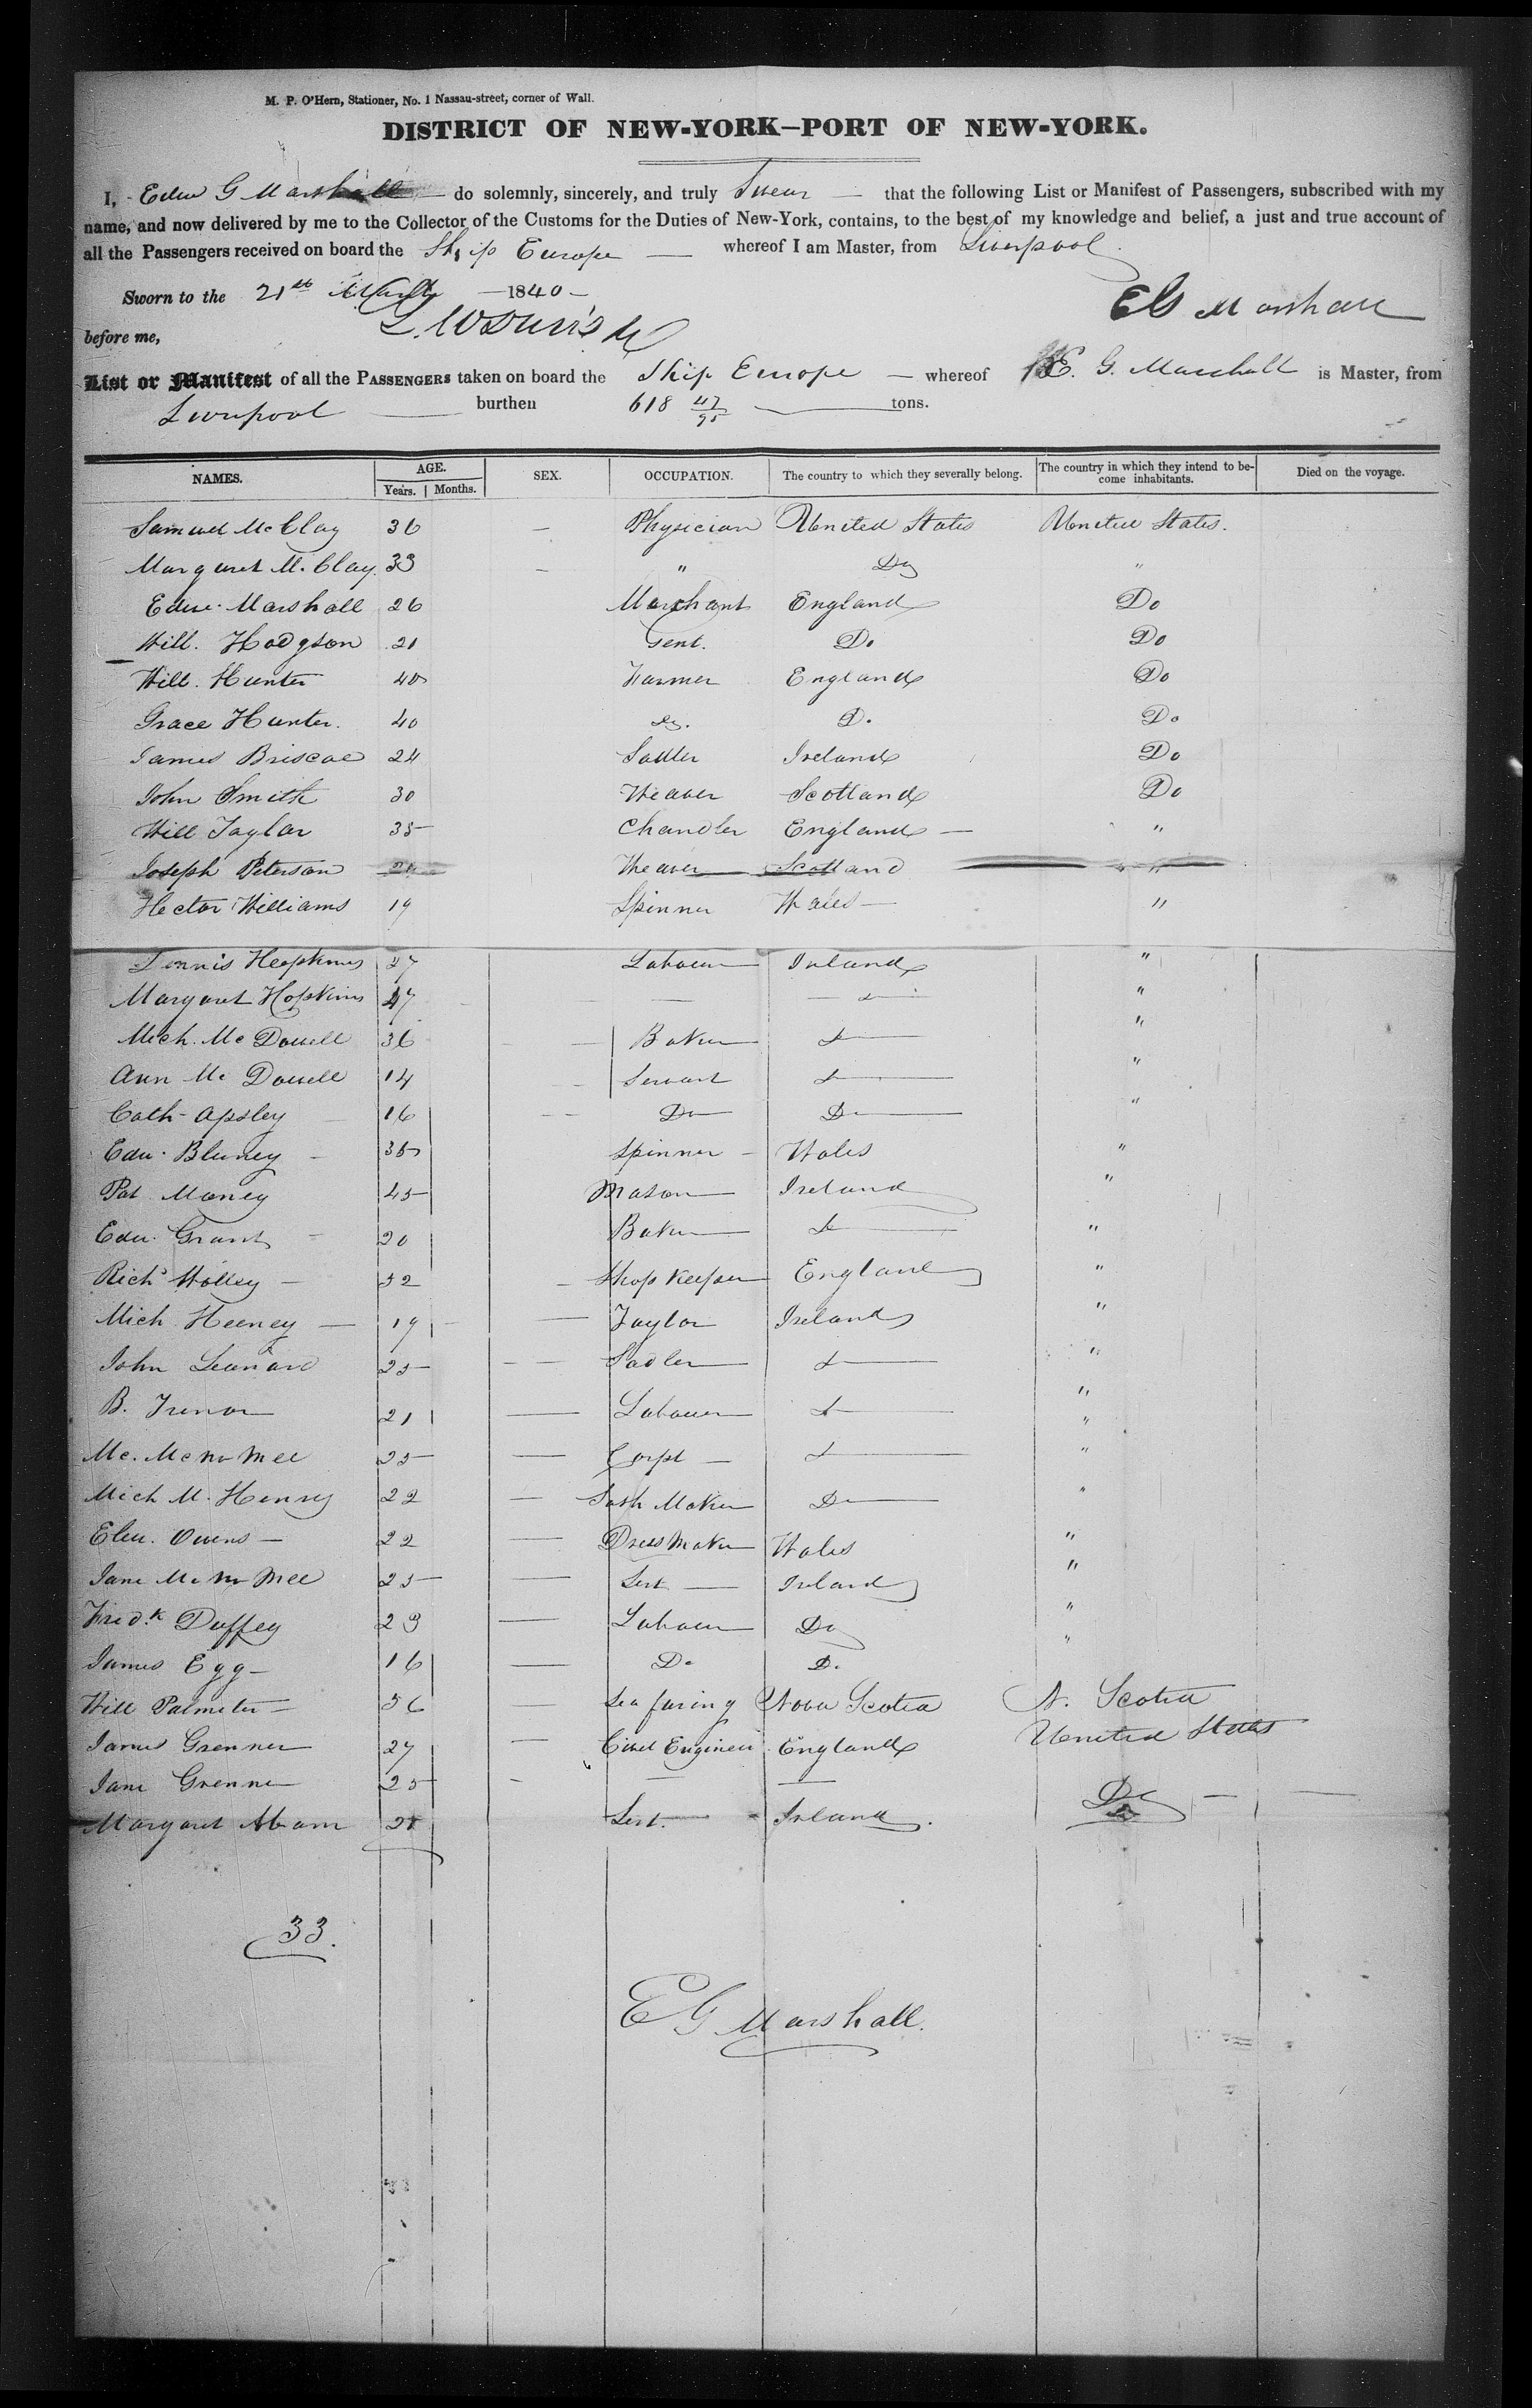 M. P. O'Hern, Stationer, No. 1 Nassau-street, corner of Wall.
DISTRICT OF NEW-YORK—PORT OF NEW-YORK.
I, Edw G Marshall do solemnly, sincerely, and truly Swear that the following List or Manifest of Passengers, subscribed with my
name, and now delivered by me to the Collector of the Customs for the Duties of New-York, contains, to the best of my knowledge and belief, a just and true account of
all the Passengers received on board the Ship Europe whereof I am Master, from Liverpool
Sworn to the 21st 1840
before me,
EG Marshall
List or Manifest of all the PASSENGERS taken on board the Ship Europe whereof E. G. Marshall is Master, from
Liverpool burthen 618 47/95 tons.
NAMES. AGE. Years. Months. SEX. OCCUPATION. The country to which they severally belong. The country in which they intend to become inhabitants. Died on the voyage.
Samuel McClay 36 Physician United States United States.
Margaret M.Clay 33 " Do "
Edw. Marshall 26 Merchant England Do
Will. Hodgson 21 Gent. Do Do
Will. Hunter 40 Farmer England Do
Grace Hunter. 40 Do. Do Do
James Briscoe 24 Sadler Ireland Do
John Smith 30 Weaver Scotland Do
Will Taylor 35 Chandler England "
Joseph Peterson Weaver Scotland "
Hector Williams 19 Spinner Wales "
Dennis Hopkins 27 Labourer Ireland "
Margaret Hopkins 27 — do "
Mich. McDowell 36 Baker do "
Ann Mc Dowell 14 Servant do "
Cath Apsley 16 Do Do "
Edw. Bluney 35 Spinner Wales "
Pat Maney 45 Mason Ireland "
Edw. Grant 20 Baker do "
Richd Wolley 32 Shop Keeper England "
Mich Heeney 19 Taylor Ireland "
John Leonard 25 Sadler do "
B. Trenor 21 Labourer do "
Mc. McNaMee 25 Carpt do "
Mich M. Henry 22 Sash Maker Do "
Elen. Owens 22 Dress Maker Wales "
Jane McNaMee 25 Sert Ireland "
Fredk Duffey 23 Labourer Do "
James Egg 16 Do Do "
Will Palmeter 56 Sea faring Nova Scotia N. Scotia
James Grenner 27 Civil Engineer England United States
Jane Grenner 25 — — Do
Margaret 28 Sert. Ireland. Do
33.
E G Marshall.